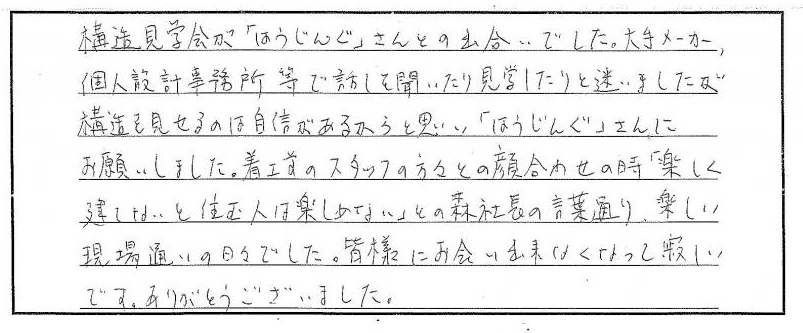 構造見学会が「ほうじんぐ」さんとの出合いでした。大手メーカー、
個人設計事務所等で話しを聞いたり見学したりと迷いましたが
構造を見せるのは自信があるからと思い「ほうじんぐ」さんに
お願いしました。着工前のスタッフの方々との顔合わせの時「楽しく
建てないと住む人は楽しめない」との森社長の言葉通り、楽しい
現場通いの日々でした。皆様にお会い出来なくなって寂しい
です。ありがとうございました。